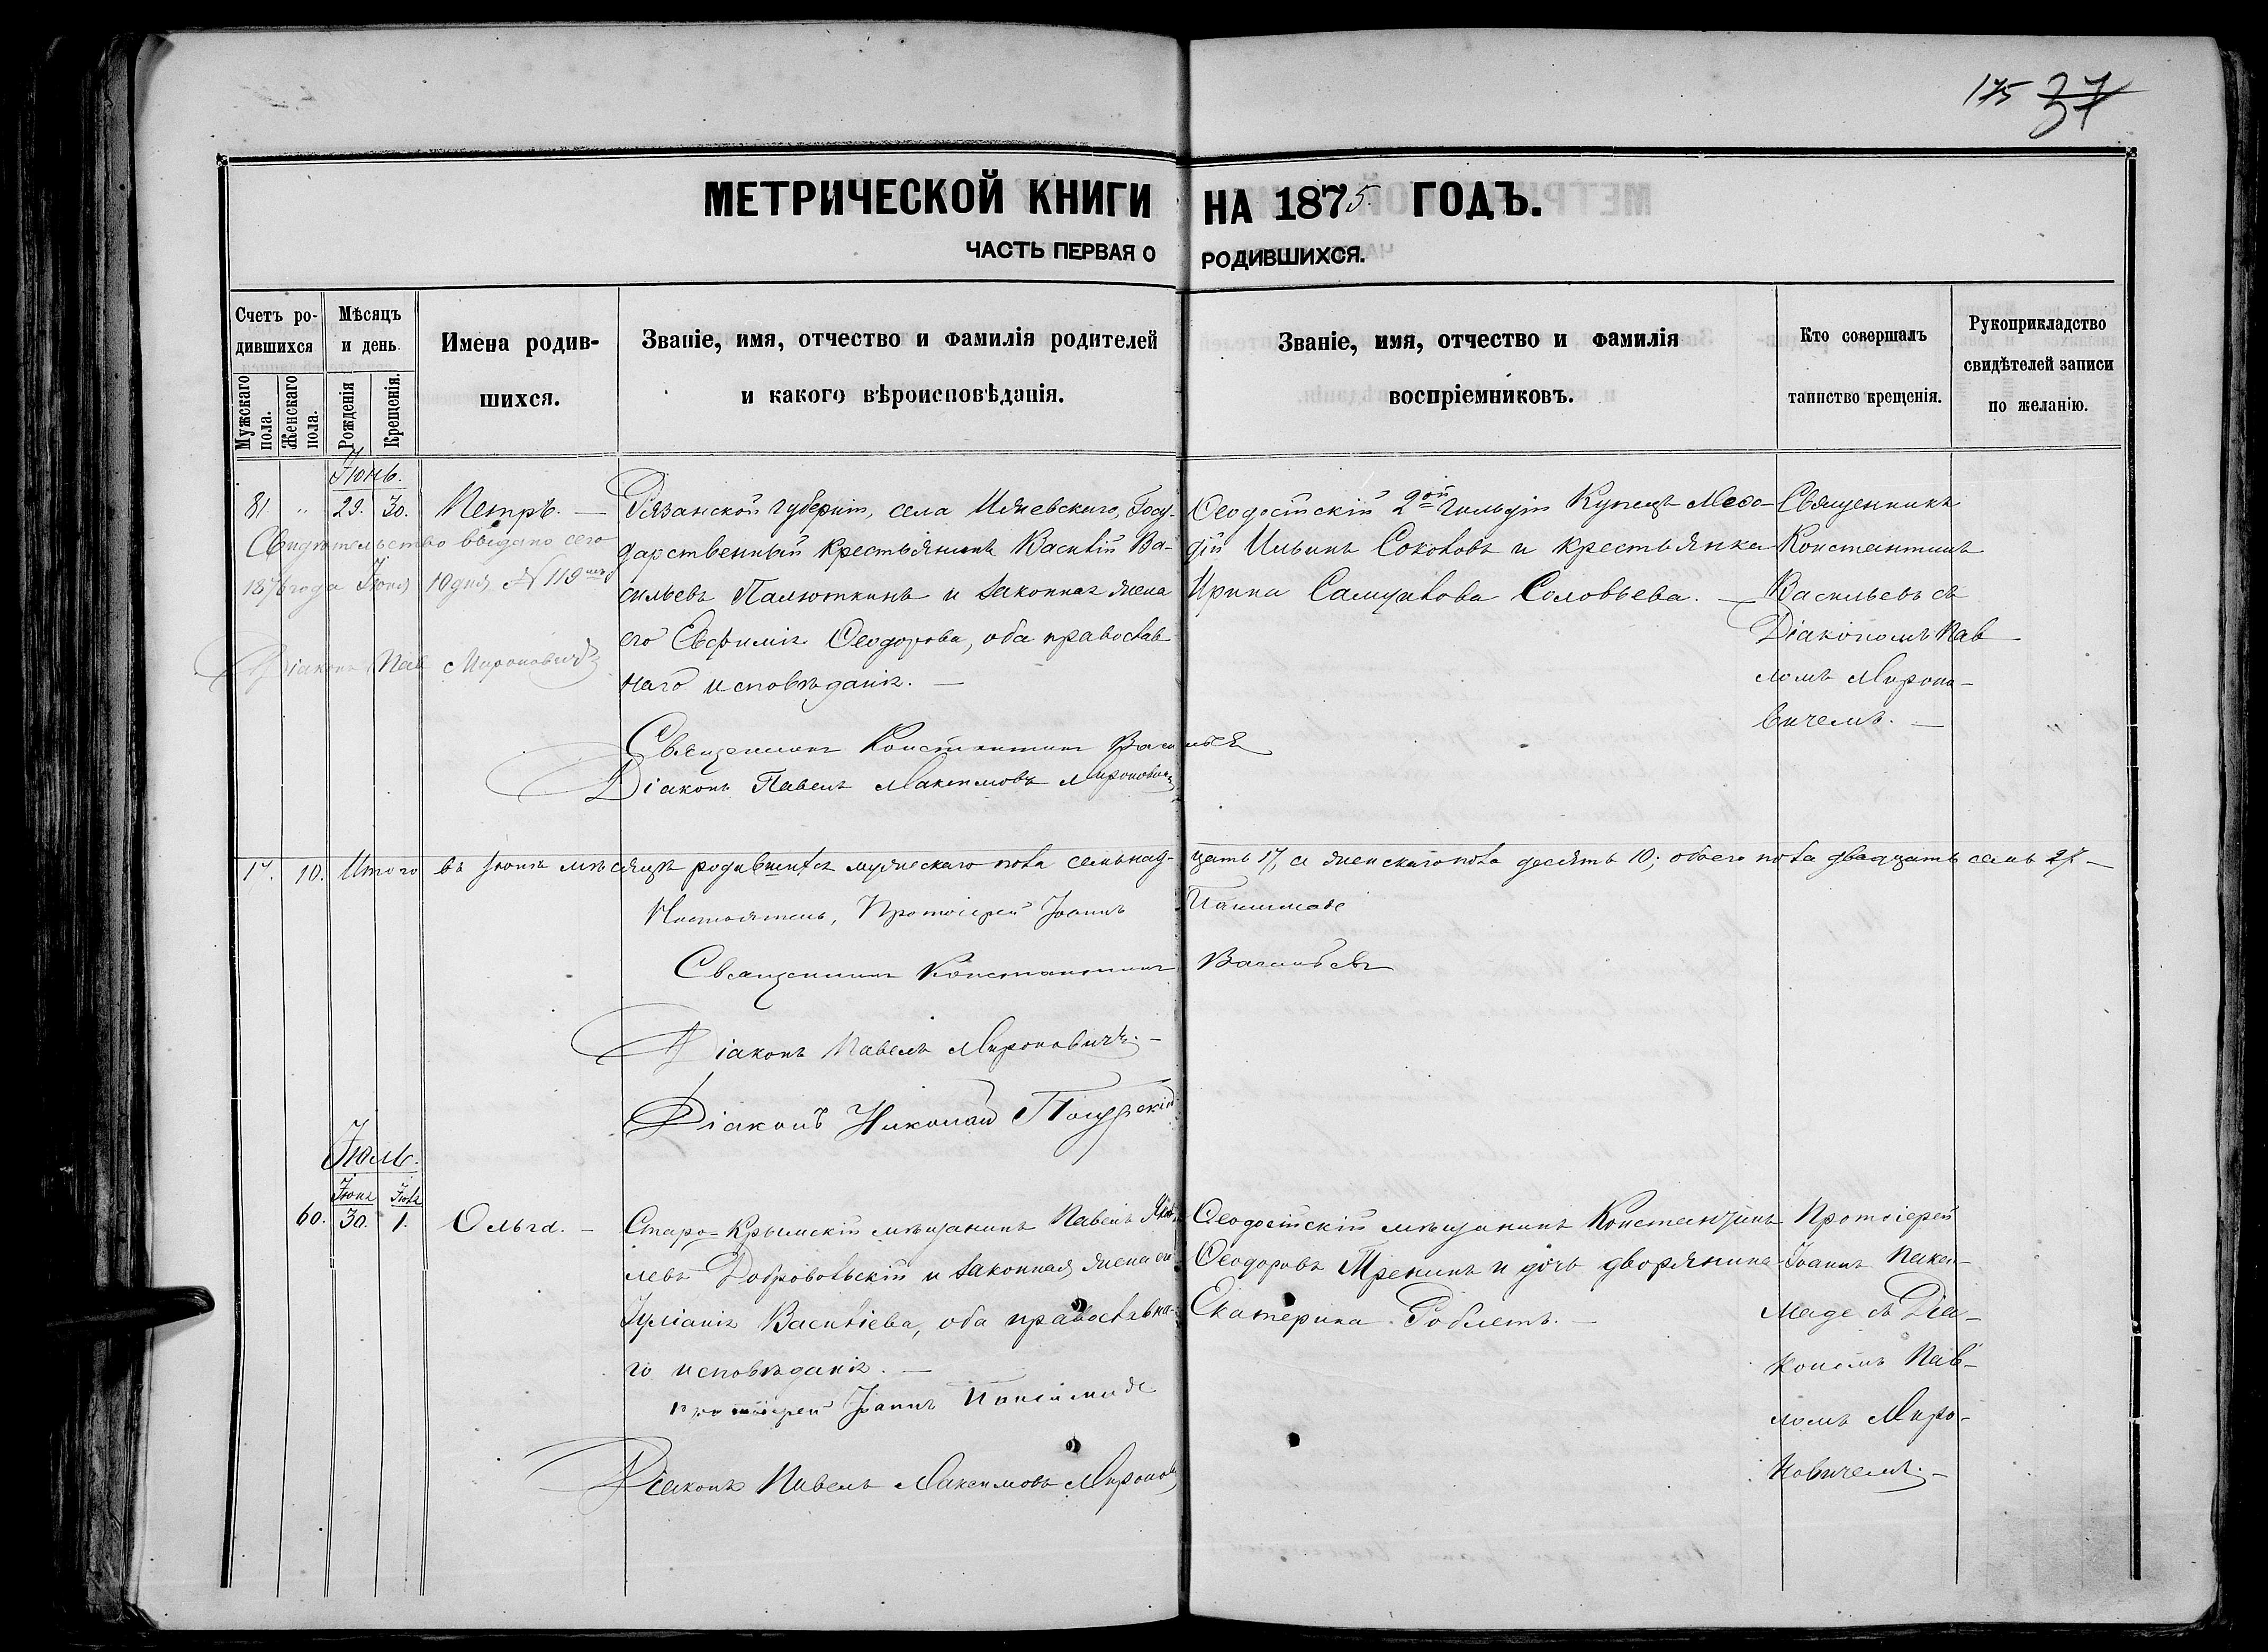 175 37
МЕТРИЧЕСКОЙ КНИГИ НА 1875 ГОДЪ.
ЧАСТЬ ПЕРВАЯ О РОДИВШИХСЯ.
Счетъ родившихся
Мужскаго пола.
Женскаго пола.
Мѣсяцъ и день.
Рожденія
Крещенія.
Имена родив-
шихся.
Званіе, имя, отчество и фамилія родителей
и какого вѣроисповѣданія.
Званіе, имя, отчество и фамилія
воспріемниковъ.
Кто совершалъ
таинство крещенія.
Рукоприкладство
свидѣтелей записи
по желанію.
Іюнь.
81. " 29. 30. Петръ. —
Свидѣтельство выдано сего
1876 года Іюня 10 дня, № 119
Діаконъ Пав Мироновичъ
Рязанской губерніи, села Госу-
дарственный крестьянинъ Василій Ва-
сильевъ Палюткинъ и законная жена
его Евфимія Ѳеодорова, оба православ
наго исповѣданія. —
Ѳеодосійскій 2ой гильдіи Купецъ Меѳо-
дій Ильинъ Соколовъ и крестьянка
Ирина Самуилова Соловьева. —
Священникъ
Константинъ
Васильевъ съ
Діакономъ Пав
ломъ Мироно-
вичемъ. —
Священникъ Константинъ Васильевъ
Діаконъ Павелъ Максимовъ Мироновичъ
17. 10. Итого въ Іюнѣ мѣсяцѣ родившихся мужескаго пола семьнад-цать 17, а женскаго пола десять 10; обоего пола двадцать семь 27 —
Настоятель, Протоіерей Іоаннъ
Священникъ Константинъ Васильевъ
Діаконъ Павелъ Мироновичъ. —
Діаконъ Николай
Іюль.
Іюня Іюля
60. 30. 1. Ольга. —
Старо-Крымскій мѣщанинъ Павелъ
левъ Добровольскій и законная жена его
Іуліанія Василіева, оба православна-
го исповѣданія. —
Ѳеодосійскій мѣщанинъ Константинъ
Ѳеодоровъ и дочь дворянина
Екатерина —
Протоіерей
Іоаннъ
съ Діа-
кономъ Пав-
ломъ Миро-
новичемъ. —
Протоіерей Іоаннъ
Діаконъ Павелъ Максимовъ Миронов